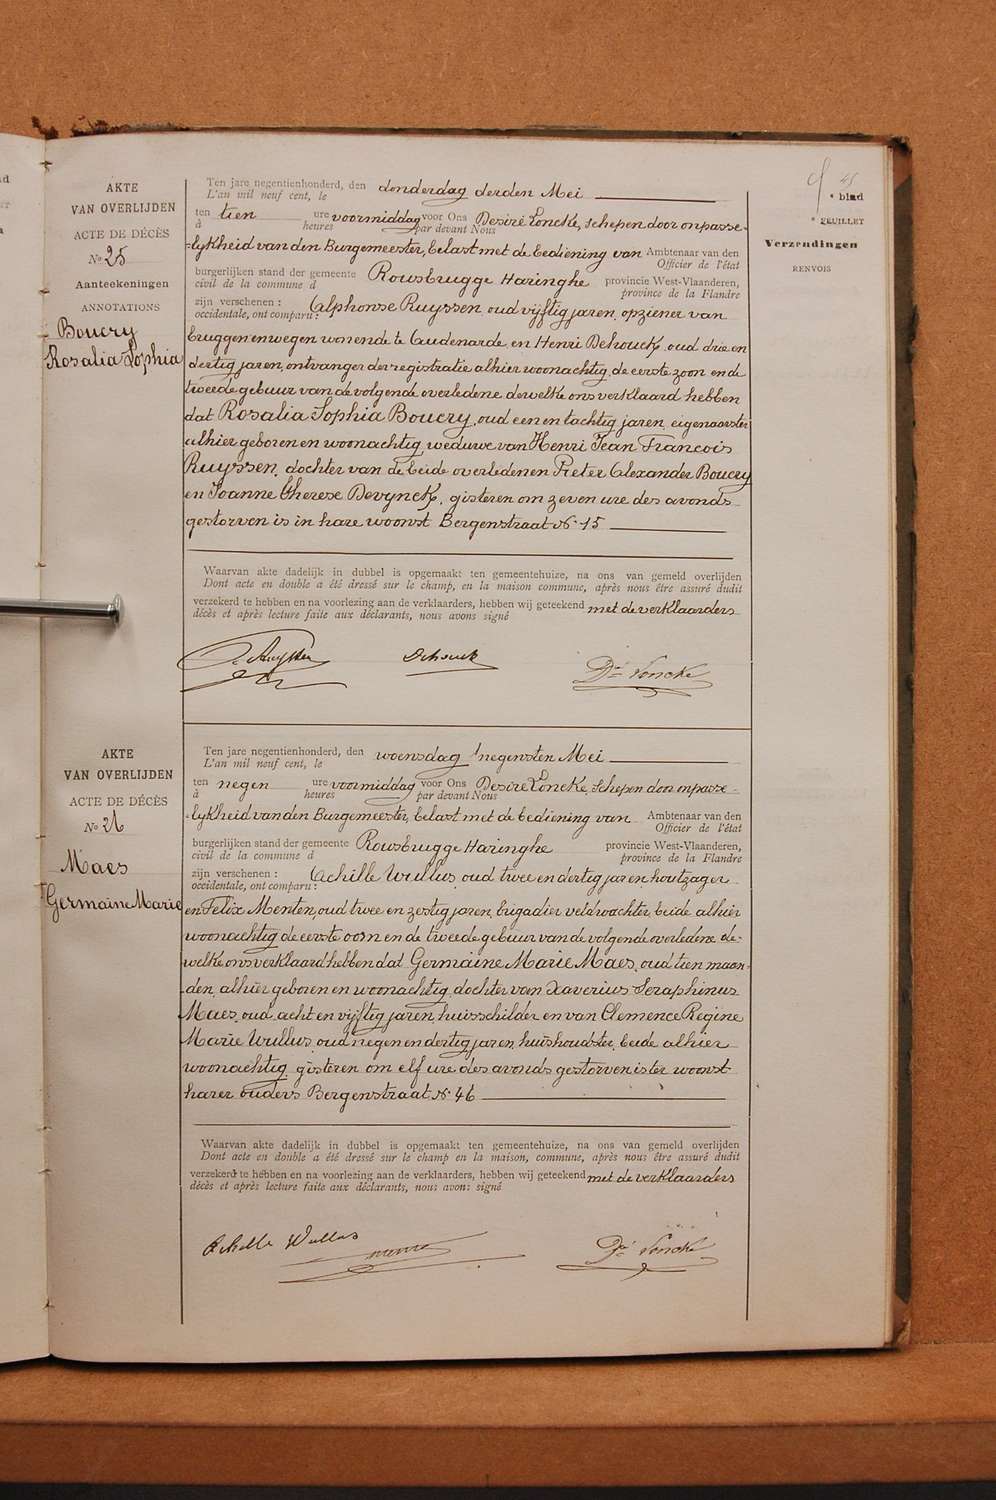 AKTE
VAN OVERLIJDEN
ACTE DE DÉCÈS
No 25
Aanteekeningen
ANNOTATIONS
Boucry
Rosalia Sophia
Ten jare negentienhonderd, den donderdag derden Mei
L'an mil neuf cent, le
ten tien ure voormiddag voor Ons Desiré Loncke, schepen door onpasse-
à heures par devant Nous
-lykheid van den Burgemeester, belast met de bediening van Ambtenaar van den
Officier de l'état
burgerlijken stand der gemeente Rousbrugge Haringhe provincie West-Vlaanderen,
civil de la commune d province de la Flandre
zijn verschenen : Alphonse Ruyssen, oud vijftig jaren, opziener van
occidentale, ont comparu :
bruggen en wegen wonende te Audenarde, en Henri Dehouck, oud drie en
dertig jaren, ontvanger der registratie alhier woonachtig, de eerste zoon en de
tweede gebuur van de volgende overledene dewelke ons verklaard hebben
dat Rosalia Sophia Boucry, oud een en tachtig jaren, eigenaarster
alhier geboren en woonachtig, weduwe van Henri Jean Francois
Ruyssen, dochter van de beide overledenen Pieter Alexander Boucry
en Joanne Therese Devynck, gisteren om zeven ure des avonds
gestorven is in hare woonst Bergenstraat No 15
Waarvan akte dadelijk in dubbel is opgemaakt ten gemeentehuize, na ons van gemeld overlijden
Dont acte en double a été dressé sur le champ, en la maison commune, après nous être assuré dudit
verzekerd te hebben en na voorlezing aan de verklaarders, hebben wij geteekend met de verklaarders
décès et après lecture faite aux déclarants, nous avons signé
A. Ruyssen Dehouck Dré Loncke
AKTE
VAN OVERLIJDEN
ACTE DE DÉCÈS
No 26
Maes
Germaine Marie
Ten jare negentienhonderd, den woensdag negensten Mei
L'an mil neuf cent, le
ten negen ure voormiddag voor Ons Desiré Loncke, schepen door onpasse-
à heures par devant Nous
-lykheid van den Burgemeester, belast met de bediening van Ambtenaar van den
Officier de l'état
burgerlijken stand der gemeente Rousbrugge Haringhe provincie West-Vlaanderen,
civil de la commune d province de la Flandre
zijn verschenen : Achille Wullus, oud twee en dertig jaren, houtzager
occidentale, ont comparu :
en Felix Menten, oud twee en zestig jaren, brigadier veldwachter, beide alhier
woonachtig de eerste oom en de tweede gebuur van de volgende overledene de-
-welke ons verklaard hebben dat Germaine Marie Maes, oud tien maan-
-den, alhier geboren en woonachtig, dochter van Xaverius Seraphinus
Maes, oud acht en vijftig jaren, huisschilder en van Clemence Regine
Marie Wullus, oud negen en dertig jaren, huishoudster, beide alhier
woonachtig, gisteren om elf ure des avonds gestorven is ter woonst
harer ouders Bergenstraat No 46
Waarvan akte dadelijk in dubbel is opgemaakt ten gemeentehuize, na ons van gemeld overlijden
Dont acte en double a été dressé sur le champ en la maison, commune, après nous être assuré dudit
verzekerd te hebben en na voorlezing aan de verklaarders, hebben wij geteekend met de verklaarders
décès et après lecture faite aux déclarants, nous avons signé
Achille Wullus Dré Loncke
blad
FEUILLET
Verzendingen
RENVOIS